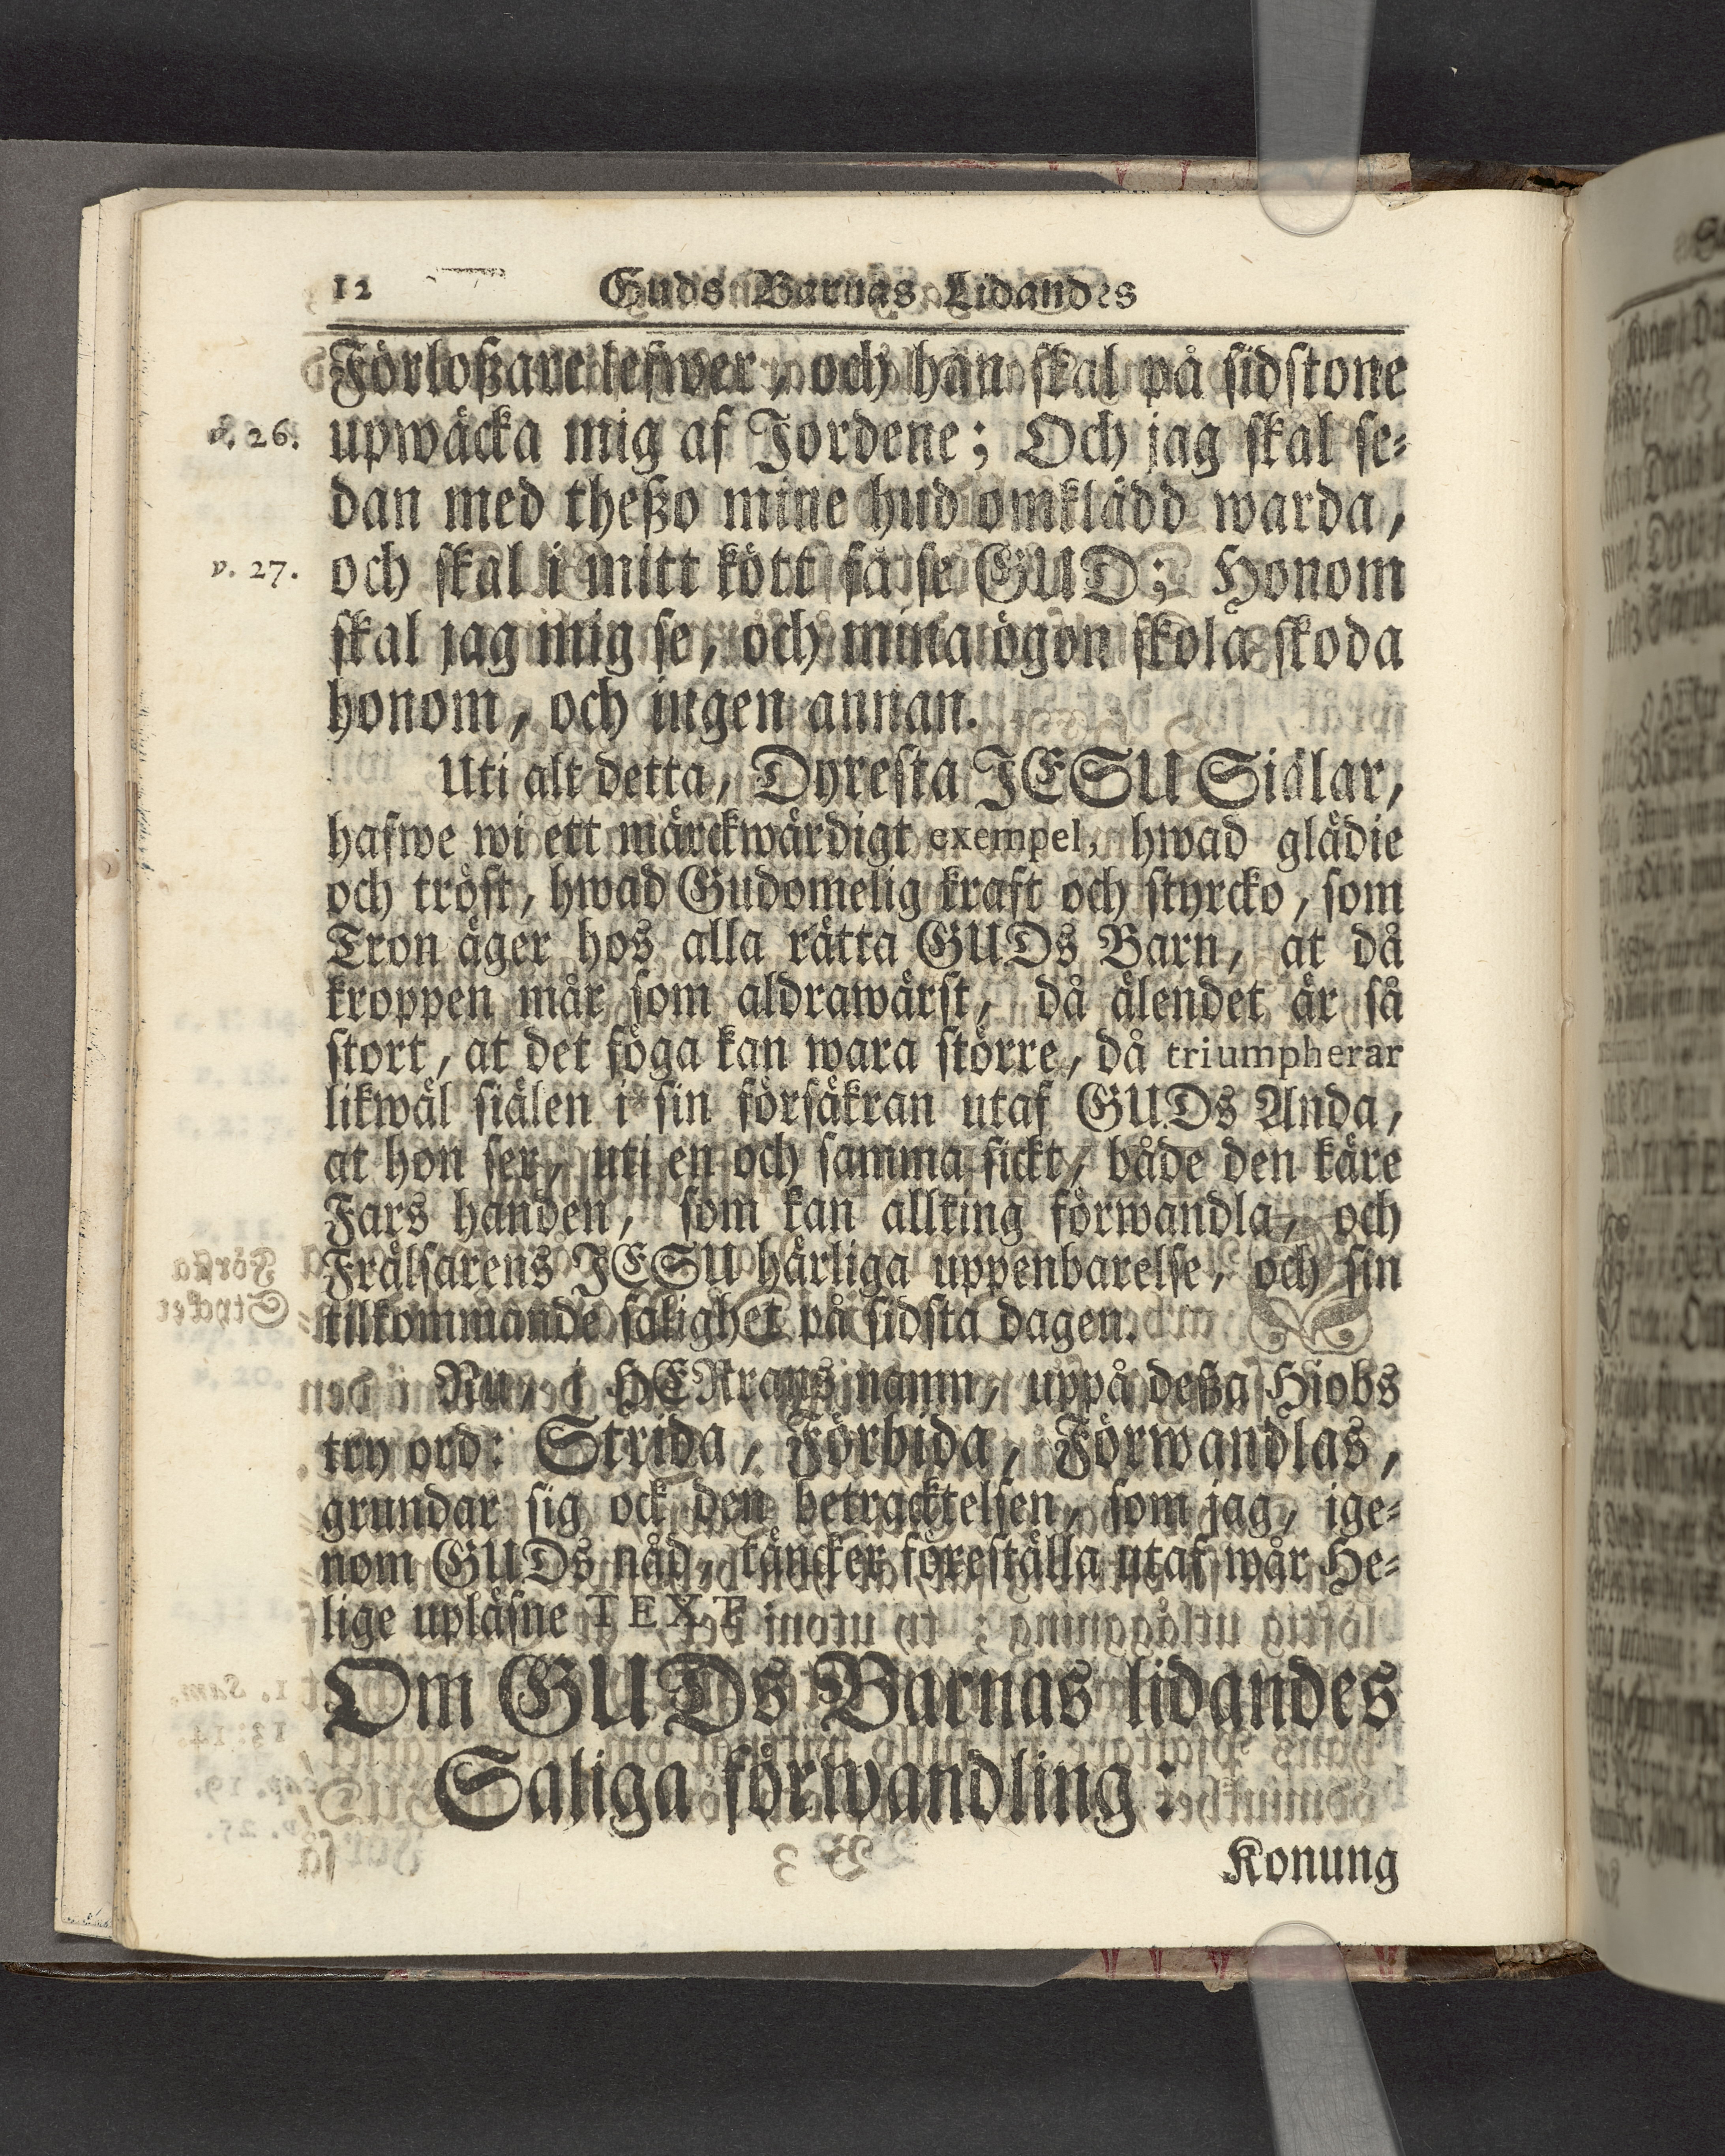 12 Guds Barnas Lidandes
Förloßare lefwer, och han skal på sidstone
v. 26. upwäcka mig af Jordene; Och jag skal se-
dan med theßo mine hud omklädd warda,
v. 27. och skal i mitt kött få se GUD; Honom
skal jag mig se, och mina ögon skola skoda
honom, och ingen annan.
Uti alt detta, Dyresta JESU Siälar,
hafwe wi ett märckwärdigt exempel, hwad glädie
och tröst, hwad Gudomelig kraft och styrcko, som
Tron äger hos alla rätta GUDs Barn, at då
kroppen mår som aldrawärst, då älendet är så
stort, at det föga kan wara större, då triumpherar
likwäl siälen i sin försäkran utaf GUDs Anda,
at hon ser, uti en och samma sickt, både den käre
Fars handen, som kan allting förwandla, och
Frälsarens JESU härliga uppenbarelse, och sin
tilkommande salighet på sidsta dagen.
Nu, i HERrans namn, uppå deßa Hiobs
try ord: Strida, Förbida, Förwandlas,
grundar sig ock den betracktelsen, som jag, ige-
nom GUDs nåd, täncker föreställa utaf wår He-
lige upläsne TEXT
Om GUDs Barnas lidandes
Saliga förwandling:
Konung